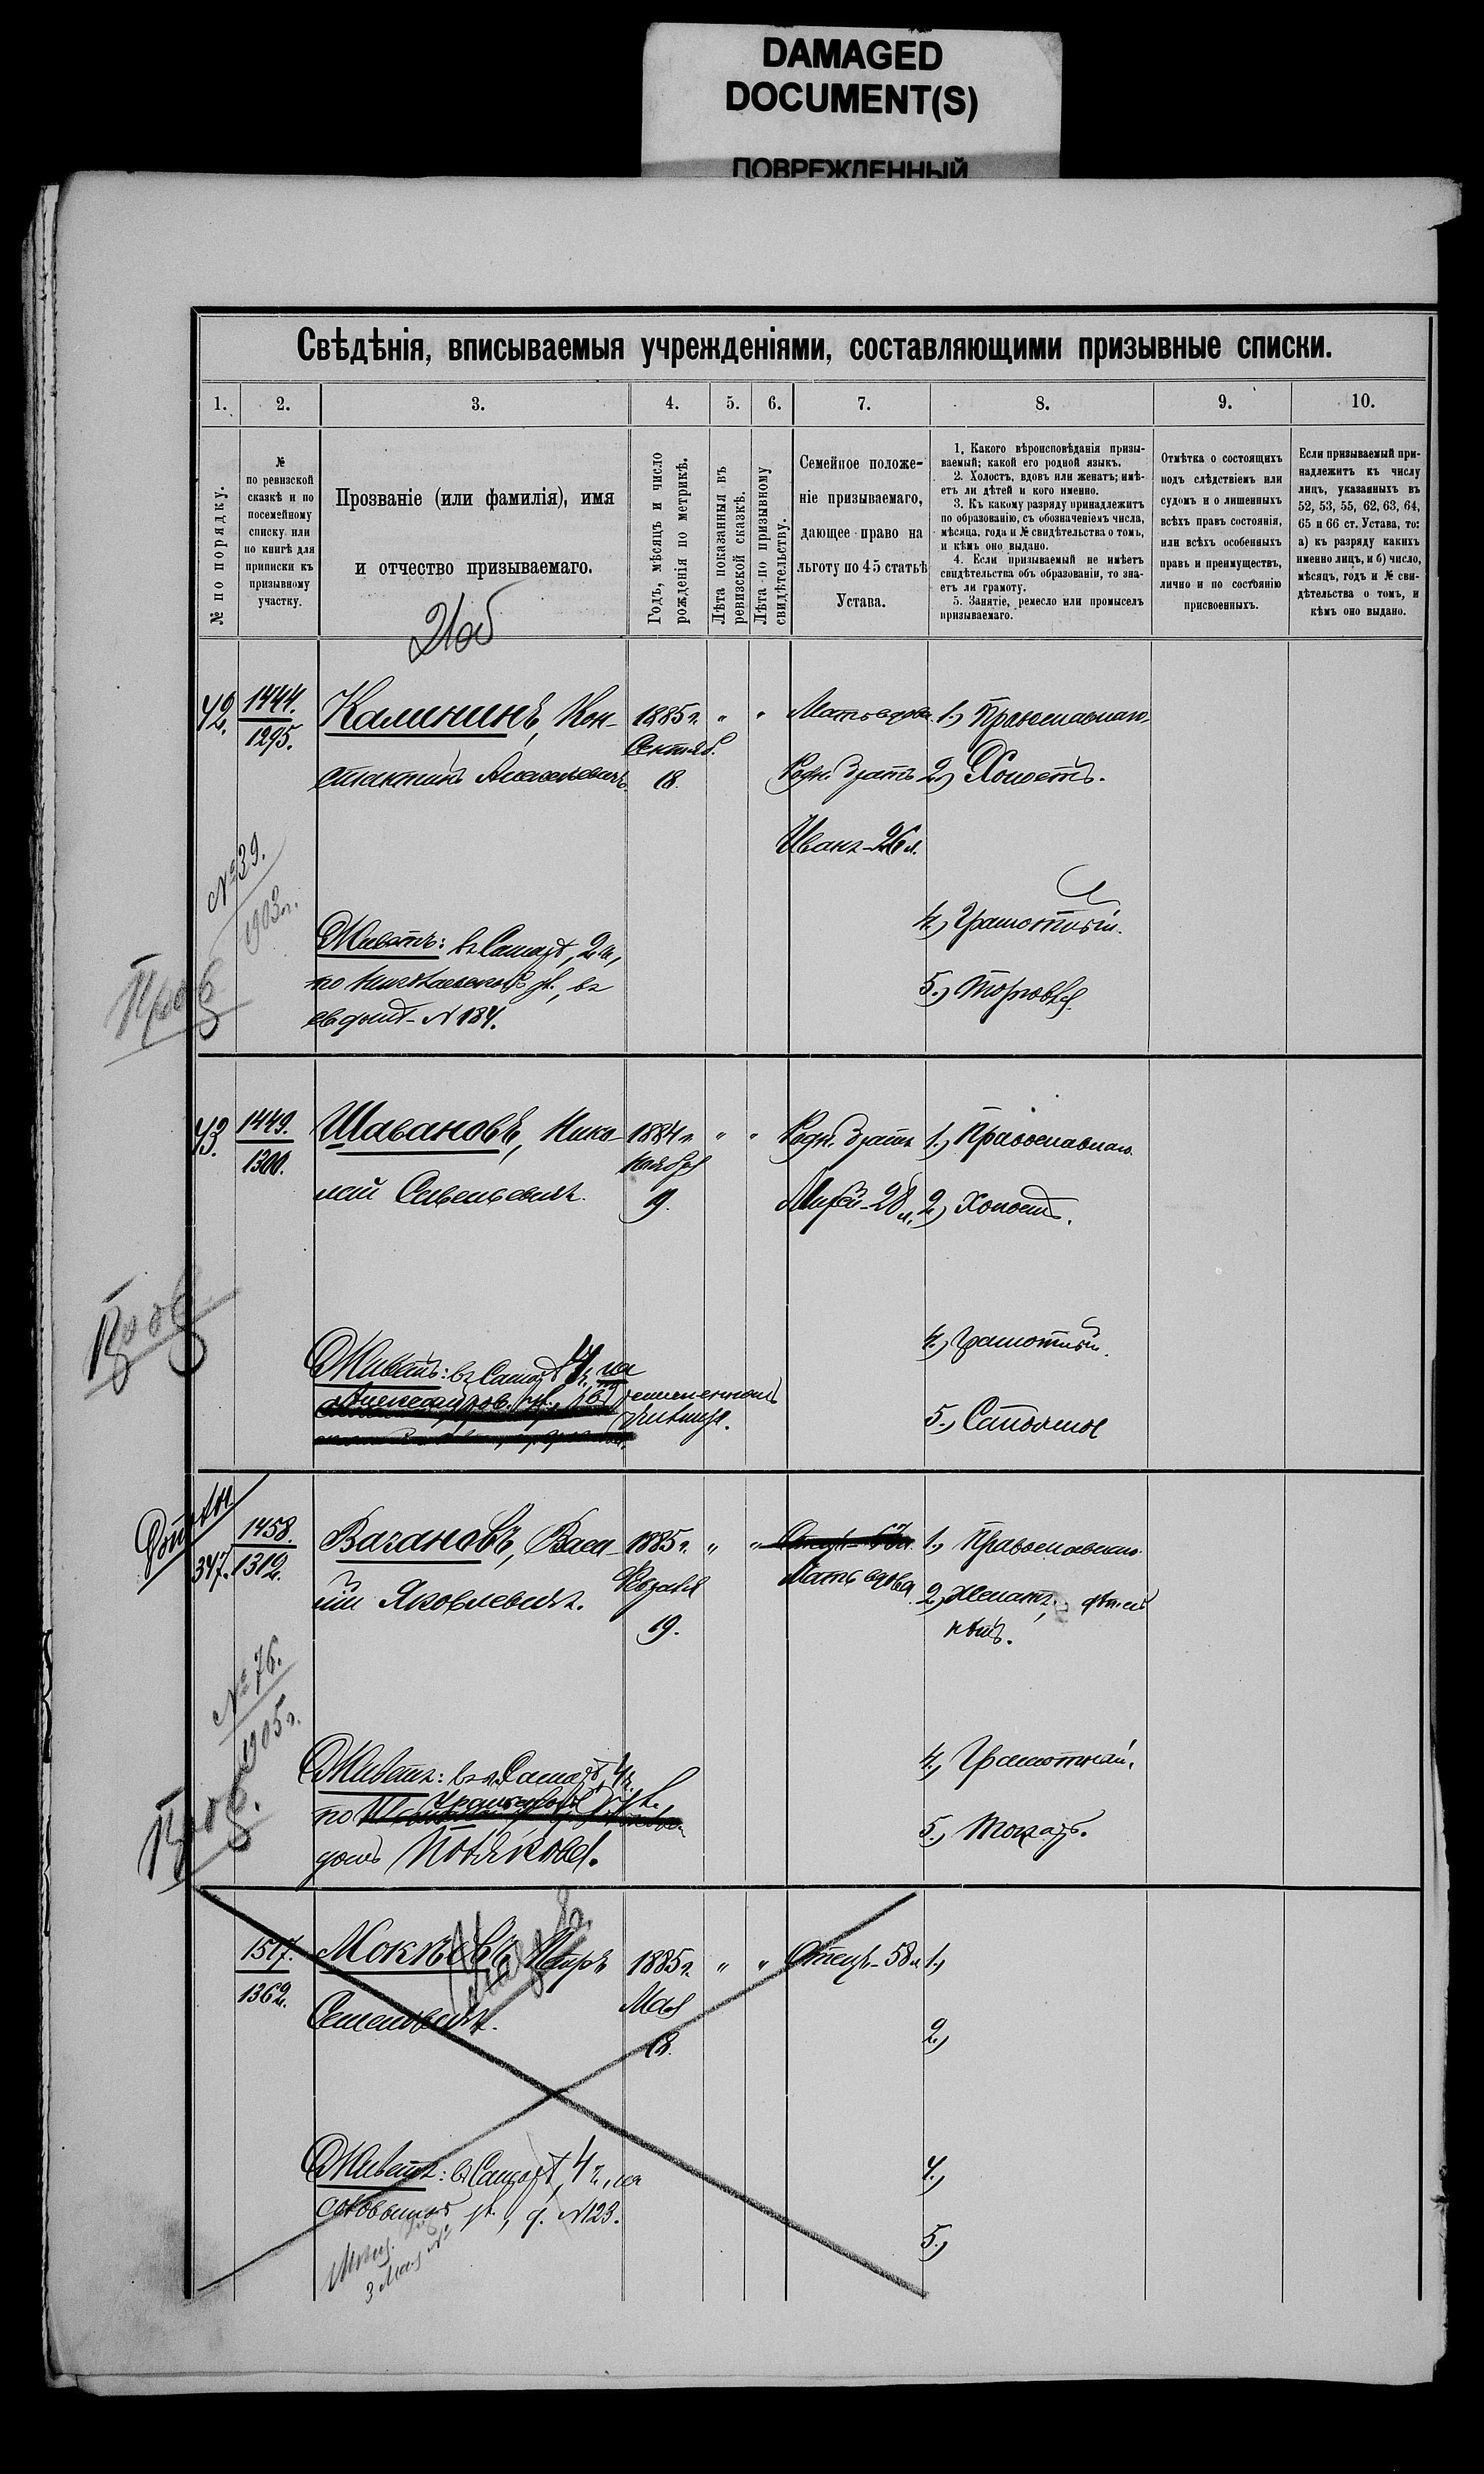 DAMAGED
DOCUMENT(S)
ПОВРЕЖДЕННЫЙ
Свѣдѣнія, вписываемыя учрежденіями, составляющими призывные списки.
1. 2. 3. 4. 5. 6. 7. 8. 9. 10.
№ по порядку.
№
по ревизской
сказкѣ и по
посемейному
списку или
по книгѣ для
приписки къ
призывному
участку.
Прозваніе (или фамилія), имя
и отчество призываемаго.
Годъ, мѣсяцъ и число
рожденія по метрикѣ.
Лѣта показанныя въ
ревизской сказкѣ.
Лѣта по призывному
свидѣтельству.
Семейное положе-
ніе призываемаго,
дающее право на
льготу по 45 статьѣ
Устава.
1. Какого вѣроисповѣданія призы-
ваемый; какой его родной языкъ.
2. Холостъ, вдовъ или женатъ; имѣ-
етъ ли дѣтей и кого именно.
3. Къ какому разряду принадлежитъ
по образованію, съ обозначеніемъ числа,
мѣсяца, года и № свидѣтельства о томъ,
и кѣмъ оно выдано.
4. Если призываемый не имѣетъ
свидѣтельства объ образованіи, то зна-
етъ ли грамоту.
5. Занятіе, ремесло или промыселъ
призываемаго.
Отмѣтка о состоящихъ
подъ слѣдствіемъ или
судомъ и о лишенныхъ
всѣхъ правъ состоянія,
или всѣхъ особенныхъ
правъ и преимуществъ,
лично и по состоянію
присвоенныхъ.
Если призываемый при-
надлежитъ къ числу
лицъ, указанныхъ въ
52, 53, 55, 62, 63, 64,
65 и 66 ст. Устава, то:
а) къ разряду какихъ
именно лицъ, и б) число,
мѣсяцъ, годъ и № сви-
дѣтельства о томъ, и
кѣмъ оно выдано.
42. 1444. Калининъ, Кон- 1885 г. " " Мать вдова. 1.) Православнаго
1295. Сентяб.
стантинъ Алексѣевичъ. 18. Родн. братъ 2.) Холостъ.
Иванъ-26 л.
№ 39.
1903 г.
4.) Грамотный.
Живетъ: въ Самарѣ, 2 ч.,
по Николаевской ул., въ
св. домѣ - № 184.
5.) Торговля.
Пров
43. 1449. Шавановъ, Нико- 1884 г. " " Родн. братъ 1.) Православнаго
1300. Ноября
лай Савельевичъ. 19. 28 л. 2.) Холостъ.
Пров
4.) Грамотный.
Живетъ: въ Самарѣ 4 ч. на
Александров. ул., въ ремесленномъ
училищѣ.
5.)
347. 1458. Вагановъ, Васи- 1885 г. " "
1312. Мать вдова
1.) Православнаго
лій Яковлевичъ. Февраля 19.
2.) Женатъ, дѣтей
нѣтъ.
№ 76.
1905 г.
Пров.
Живетъ: въ г. Самарѣ, 4 ч.
по
домъ Полякова.
4.) Грамотный.
5.) Токарь.
1517. Петръ 1885 г. " " Отецъ - 58 л. 1.)
1362. Мая
Семеновичъ. 18. 2.)
Живетъ: въ Самарѣ, 4 ч., на
ул., д. № 123.
4.)
5.)